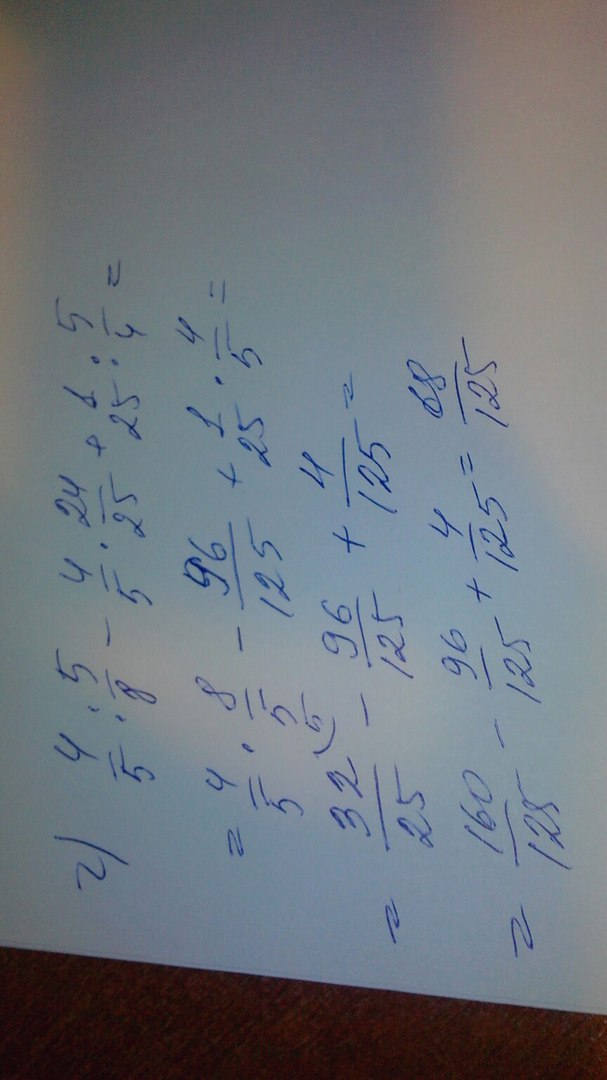 г) 4/5 : 5/8 - 4/5 · 24/25 + 1/25 : 5/4 =
= 4/5 · 8/5 - 96/125 + 1/25 · 4/5 =
= 32/25 (5 - 96/125 + 4/125 =
= 160/125 - 96/125 + 4/125 = 68/125